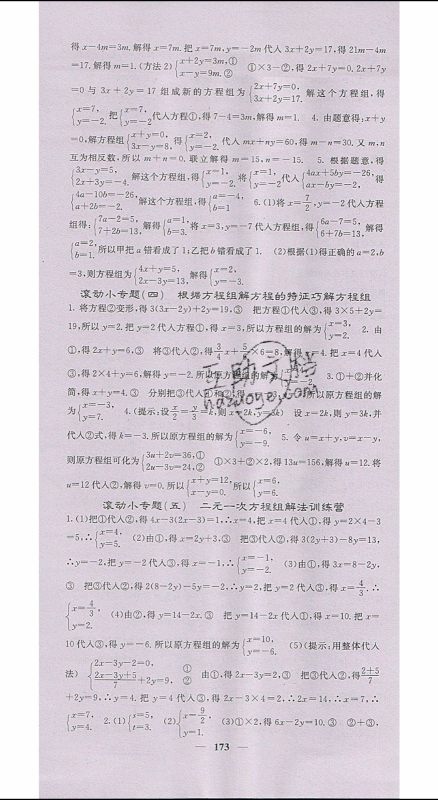 得x-4m=3m.解得x=7m.把x=7m,y=-2m代入3x+2y=17,得21m-4m
=17.解得m=1.(方法2){x+2y=3m,① x-y=9m.② ①×3-②,得2x+7y=0.2x+7y
=0与3x+2y=17组成新的方程组为{2x+7y=0, 3x+2y=17. 解这个方程组,得
{x=7, y=-2. 把{x=7, y=-2代入方程①,得7-4=3m,解得m=1. 4.由题意得:x+y
=0,解方程组{x+y=0, 3x-y=8, 得{x=2, y=-2. 代入mx+ny=60,得m-n=30.又m,n
互为相反数,所以m+n=0.联立解得m=15,n=-15. 5.根据题意,得
{3x-y=5, 2x+3y=-4, 解这个方程组,得{x=1, y=-2. 将{x=1, y=-2, 代入{4ax+5by=-26, ax-by=-2, 得
{4a-10b=-26, a+2b=-2. 解这个方程组,得{a=-4, b=1 6.(1)将x=7/2,y=-2代入方程
组得:{7a-2=5, 7+2b=13, 解得{a=1, b=3. 将x=3,y=-7代入方程组,得{6a-7=5, 6+7b=13, 解得
{a=2, b=1. 所以甲把a错看成了1;乙把b错看成了1. (2)根据(1)得正确的a=2,b
=3,则方程组为{4x+y=5, 2x-3y=13, 解得{x=2, y=-3.
滚动小专题(四) 根据方程组解方程的特征巧解方程组
1.将方程②变形,得3(3x-2y)+2y=19,③ 把方程①代入③,得3×5+2y=
19,所以y=2.把y=2代入方程①,得x=3,所以方程组的解为{x=3, y=2. 2.由
①,得2x+y=6,③ 将③代入②,得3/4x+5/2×6=8,解得 =4.把x=4代入
③,得2×4+y=6,解得y=-2.所以原方程组的解为 y=-2. 3.①+②并化
简,得x+y=4.③ 分别把③代入①和②,得 所以原方程组的解
为{x=-3, y=7. 4.(提示,设x/2=y/3=k,则x=2k,y=3k) 设x=2k,则y=3k,并
代入②式,得k=-3.所以原方程组的解为{x=-6, y=-9. 5.令u=x+y,v=x-y,
则原方程组可化为{3u+2v=36,① 2u-3v=24,② ①×3+②×2,得13u=156,解得u=12.将
u=12代入②,解得v=0.所以{x+y=12, x-y=0. 所以{x=6, y=6.
滚动小专题(五) 二元一次方程组解法训练营
1.(1)把①代入②,得4x-3(2x-3)=1,∴x=4,把x=4代入①,得y=2×4-3
=5,∴{x=4, y=5. (2)由①,得x=2y+3,③ 把③代入②,得3(2y+3)-8y=13,
∴y=-2,把y=-2代入③,得x=-1,∴{x=-1, y=-2. (3)由①,得3x=8-2y,
③ 把③代入②,得2(8-2y)-5y=-2,∴y=2,把y=2代入③,得x=4/3.∴
{x=4/3, y=2. (4)由②,得y=14-2x.③ 把y=14-2x代入①,得x=10.把x=
10代入③,得y=-6.所以原方程组的解为{x=10, y=-6. (5)(提示:用整体代入
法) {2x-3y-2=0, ① (2x-3y+5)/7+2y=9, ② 由①,得2x-3y=2,③ 把③代入②,得(2+5)/7
+2y=9,∴y=4.把y=4代入③,得2x-3×4=2,∴2x=14,∴x=7,∴
{x=7, y=4. 2.(1){s=5, t=3. (2){x=9/2, y=1. (3)①×2,得6x-2y=10.③ ②+③,
173